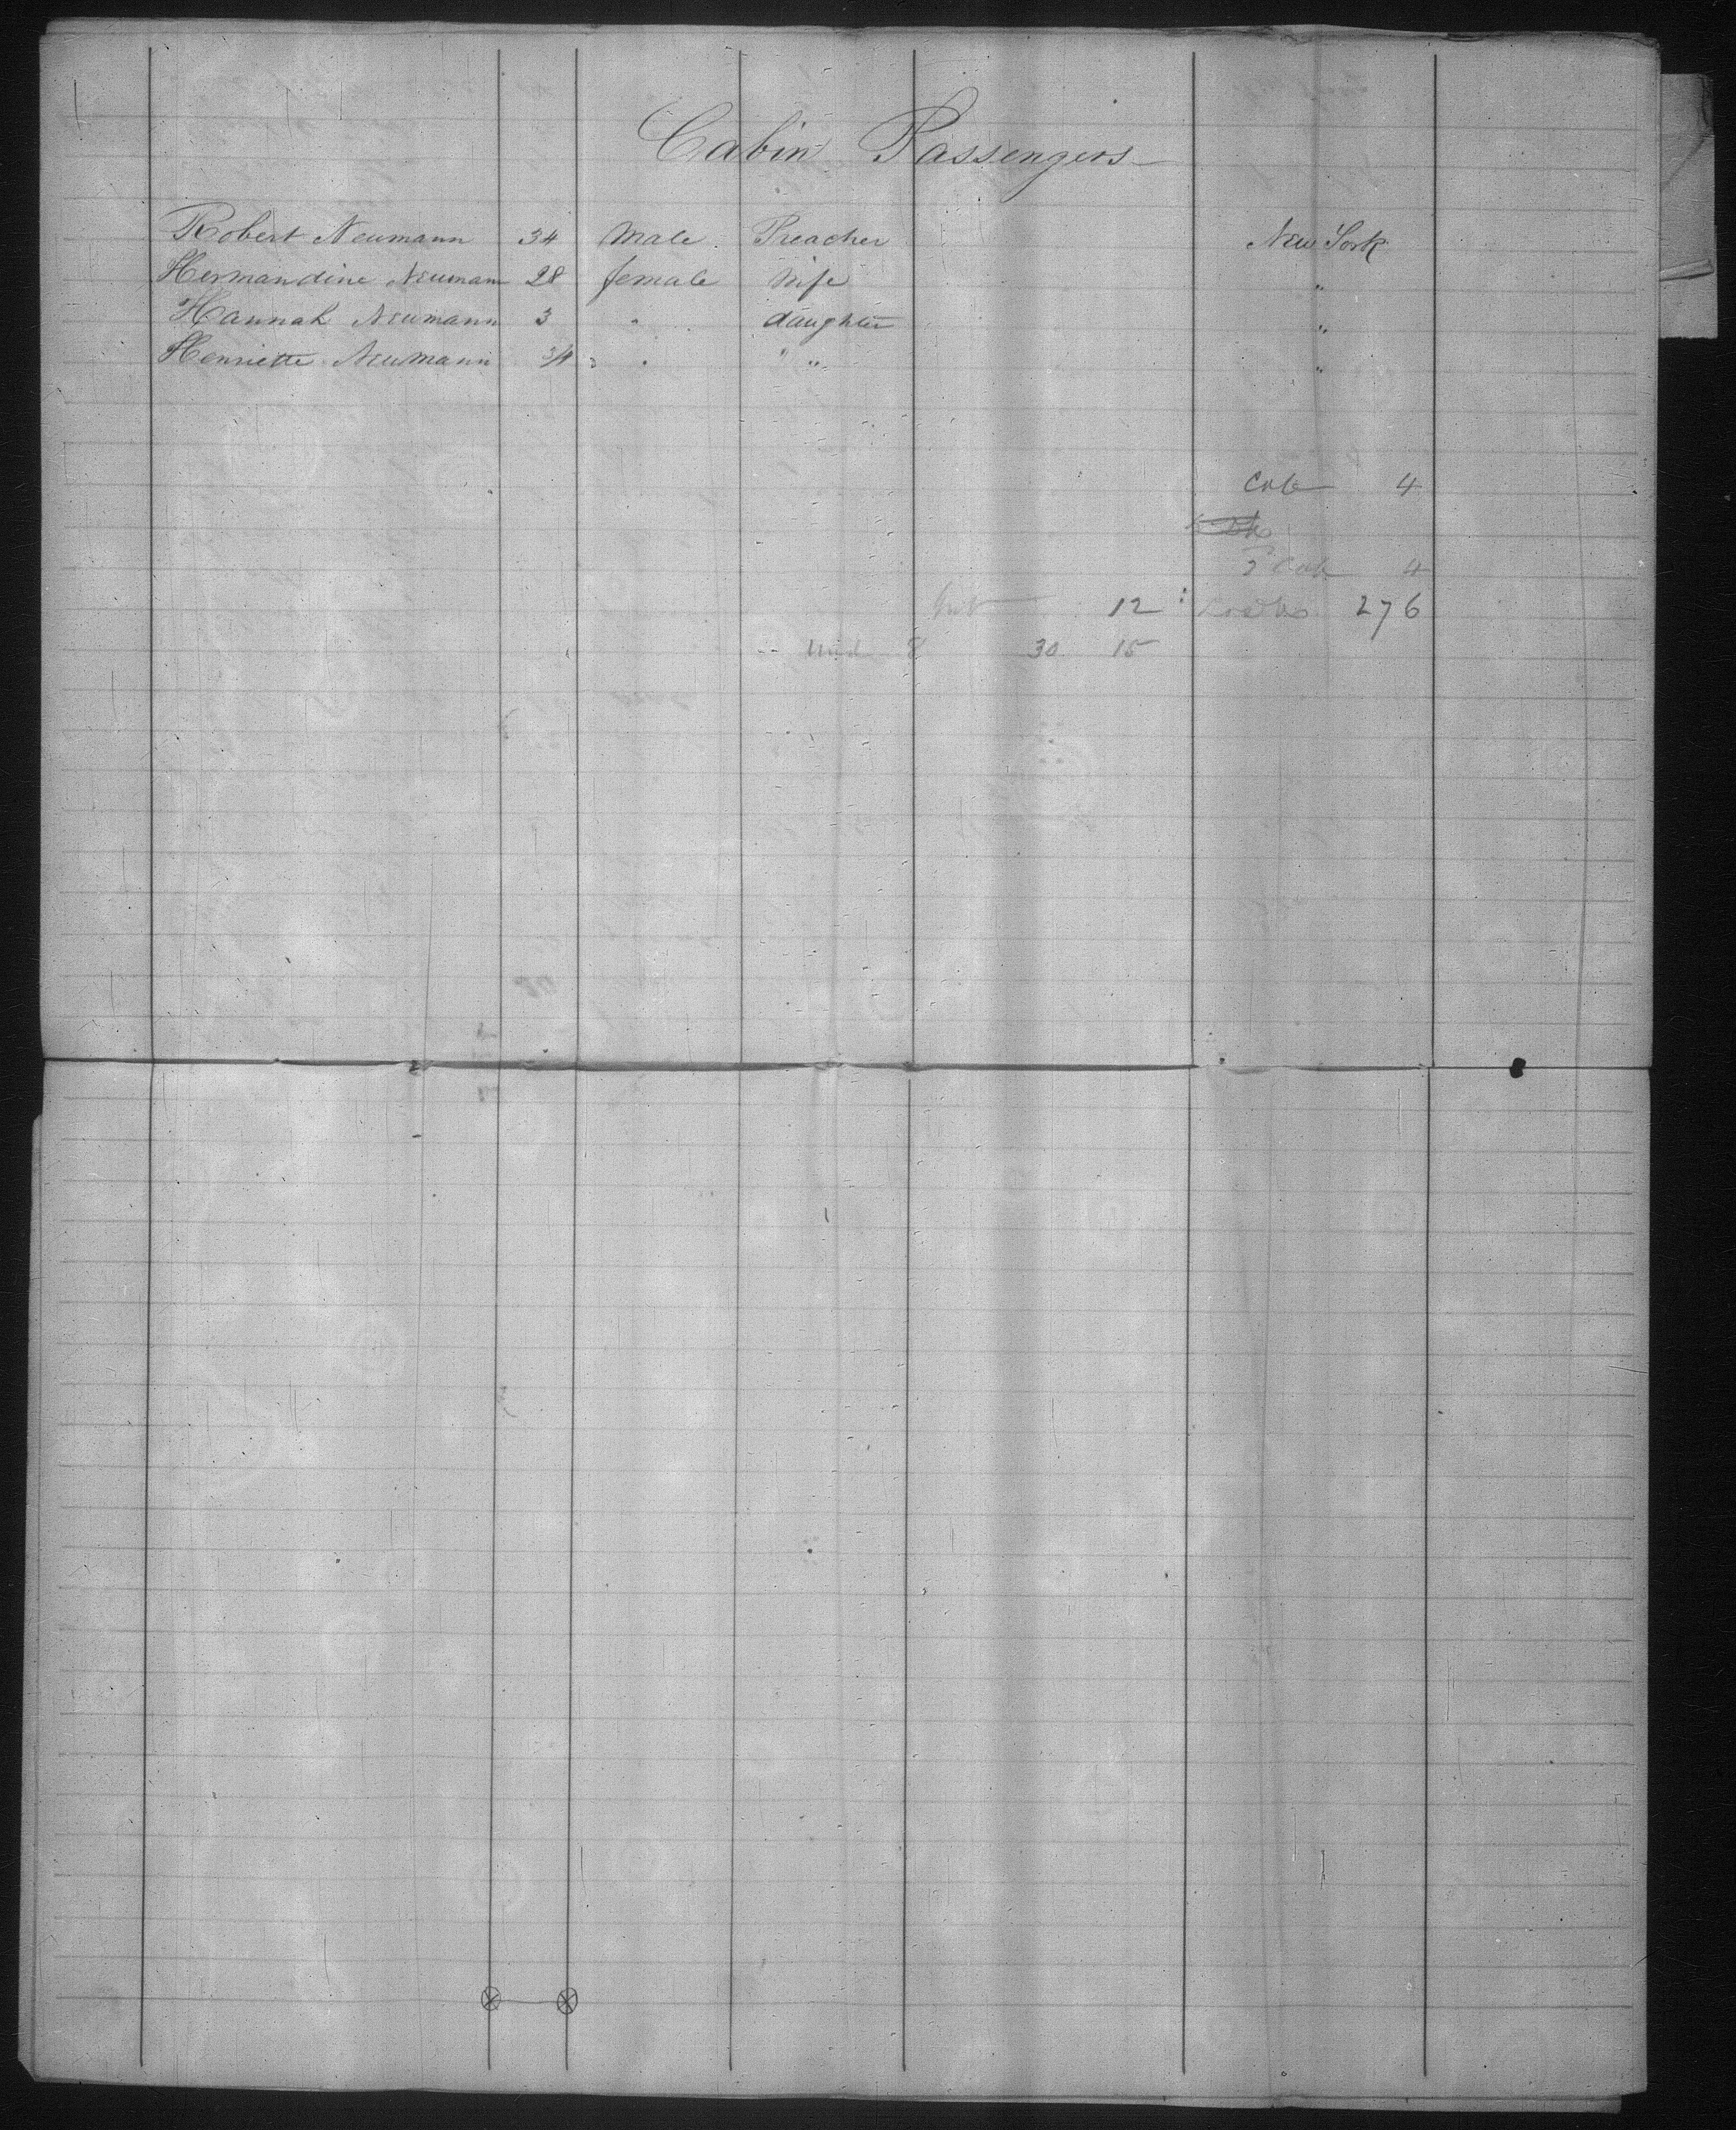 Cabin Passengers
Robert Neumann 34 Male Preacher New York
Hermandine Neumann 28 female wife "
Hannah Neumann 3 " daughter "
Henriette Neumann 3/4 " " "
Cab 4
2d Cab 4
12 276
8 30 15